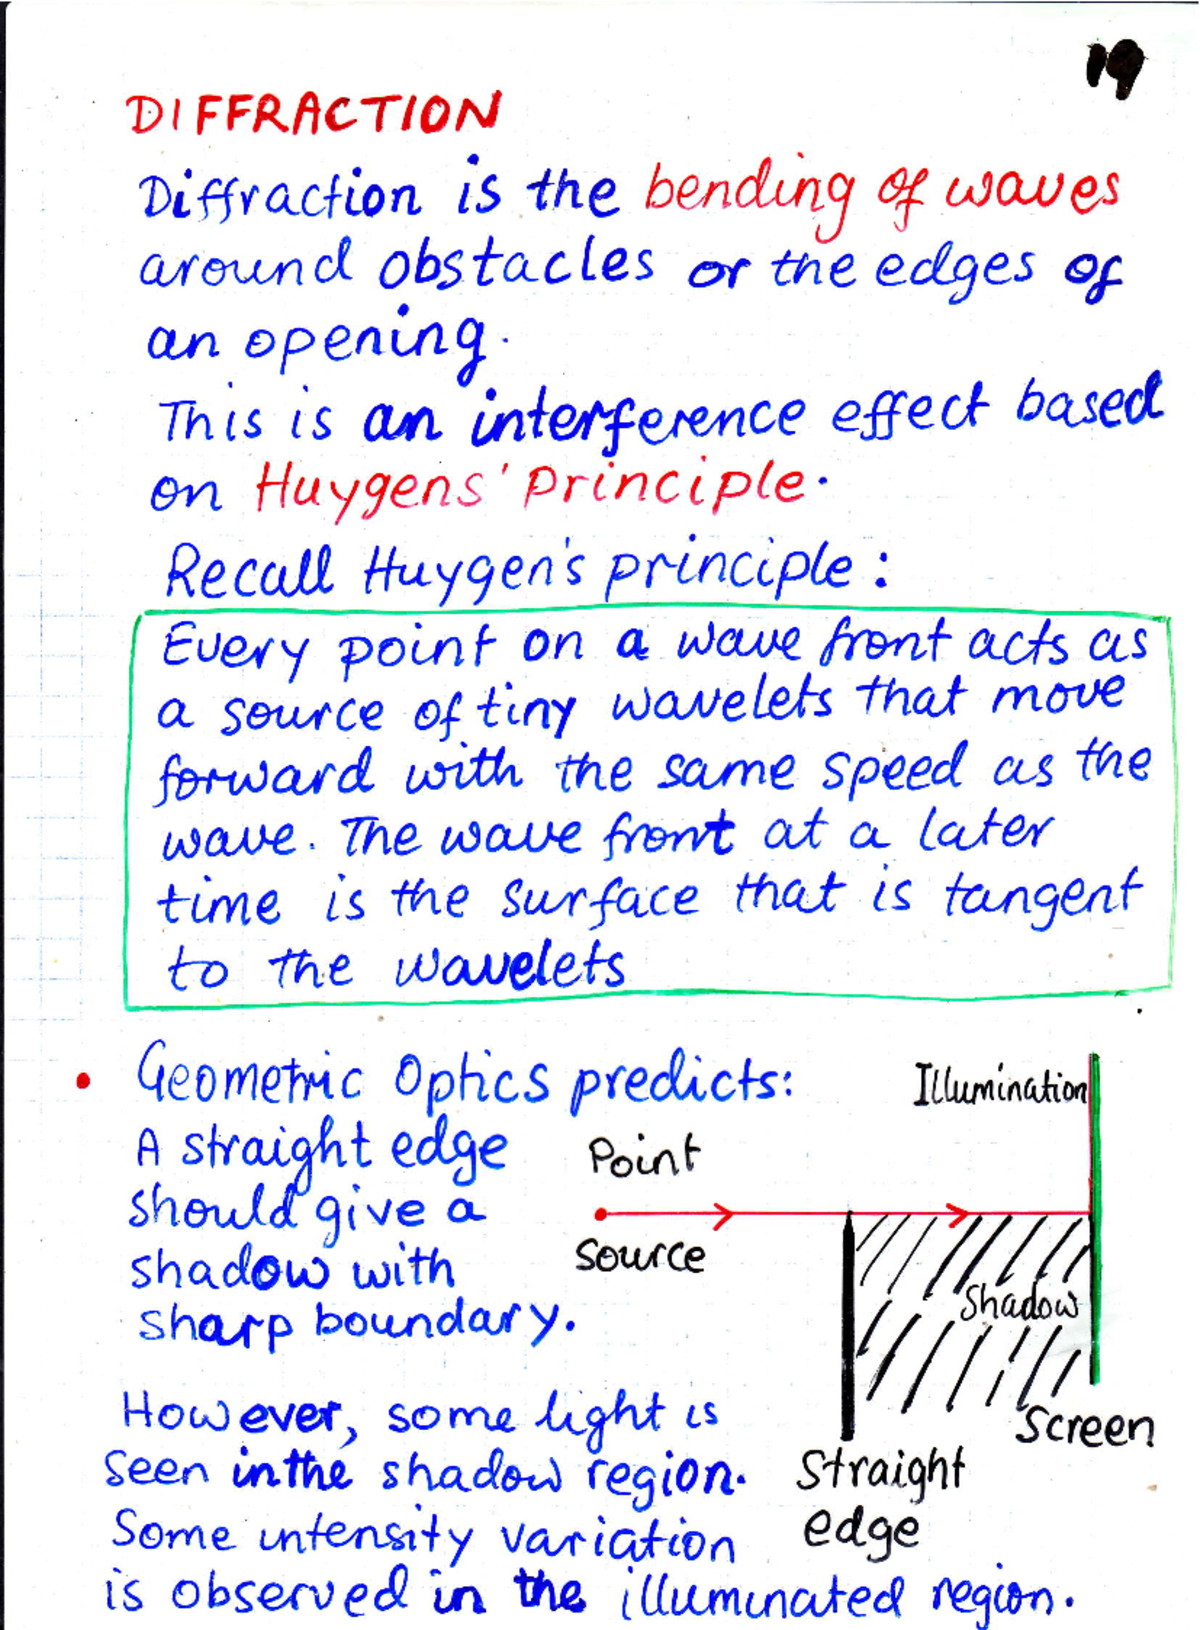 19
DIFFRACTION
Diffraction is the bending of waves
around obstacles or the edges of
an opening.
This is an interference effect based
on Huygens' Principle.
Recall Huygen's principle:
Every point on a wave front acts as
a source of tiny wavelets that move
forward with the same speed as the
wave. The wave front at a later
time is the surface that is tangent
to the wavelets
• Geometric Optics predicts:
A straight edge
should give a
shadow with
sharp boundary.
Illumination
Point
source
Shadow
Screen
Straight
edge
However, some light is
seen in the shadow region.
Some intensity variation
is observed in the illuminated region.